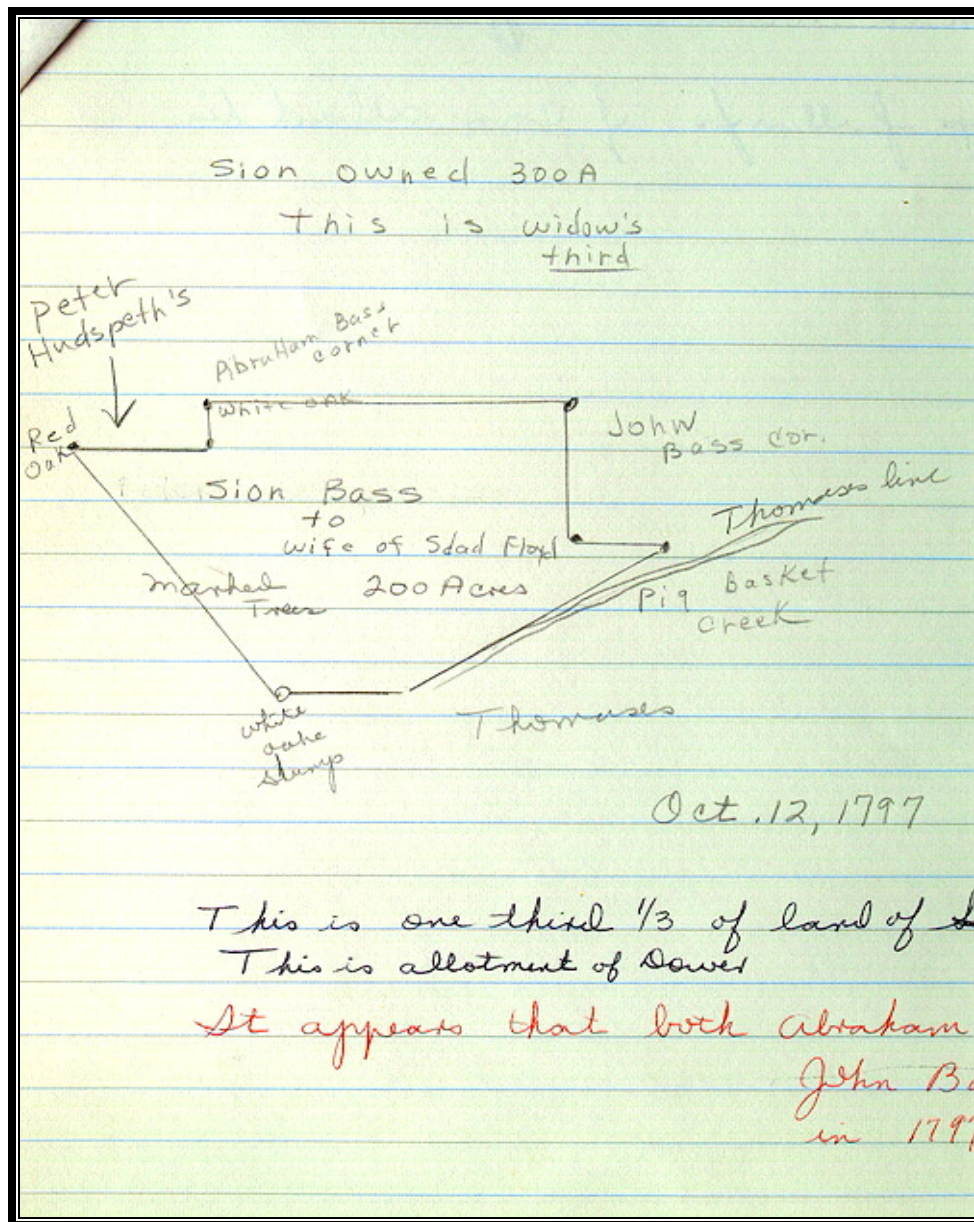 Sion owned 300A
This is widow's
third
Peter
Hudspeth's
AbraHam Bass
corner
White oak
Red
Oak
John
Bass cor.
Sion Bass
to
wife of Sdad Floyd
Thomases line
Marked
Trees
200 Acres
Pig Basket
Creek
Thomases
white
oake
stump
Oct. 12, 1797
This is one third 1/3 of land of
This is allotment of Dower
It appears that both Abraham
John
in 1797